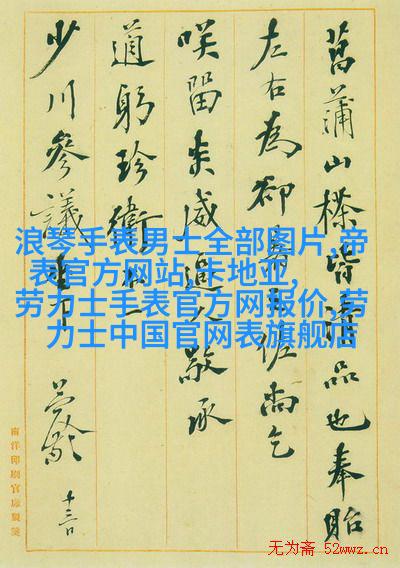 菖蒲山榛皆品也奉貽
左右為卻暑佐尚乞
咲留炎威逼人敬承
道躬珍衛
少川參議
十三日
南洋印刷官廠製箋
浪琴手表男士全部图片,帝
表官方网站,卡地亚,
劳力士手表官方网报价,劳
力士中国官网表旗舰店
无为斋 52wwz.cn